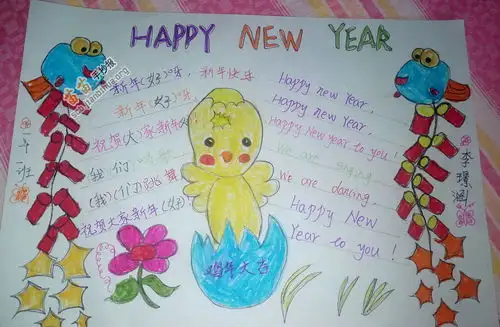 HAPPY NEW YEAR
新年(好)呀，新年快乐
新年(好)呀
祝贺(大)家新年
(我们
(我)(们)跳舞
祝贺大家新年(好)
Happy new Year,
Happy new Year,
Happy New Year to you!
We are singing
We are dancing
Happy New
Year to you!
鸡年大吉
班
李
手抄报